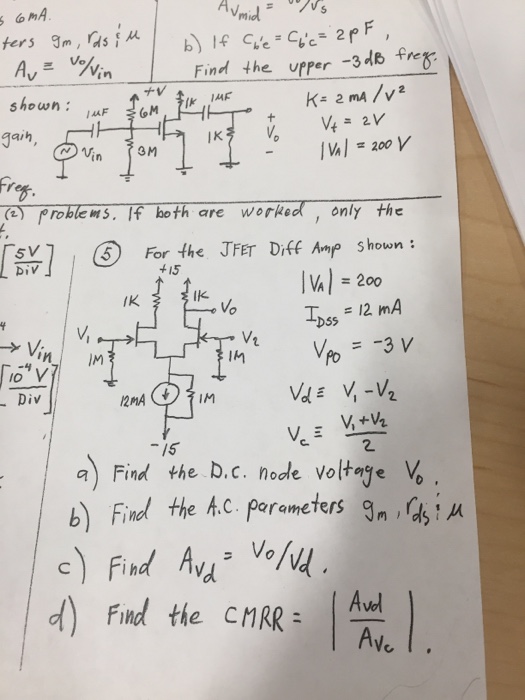 s 6 mA.
ters gm, rds ; μ
Av ≡ Vo/Vin
AVmid = Vo/Vs
b) If Cb'e = Cb'c = 2 pF,
Find the upper -3dB freq.
shown:
gain,
freq.
1MF
+V
6M
1K
1MF
1K
+
Vo
-
Vin
3M
K = 2 mA/V²
Vt = 2V
|VA| = 200 V
(2) problems. If both are worked, only the
[5V/Div]
Vin
[10⁻⁴ V/Div]
5 For the JFET Diff Amp shown:
+15
1K
1K
Vo
V1
V2
1M
1M
12MA
1M
-15
|VA| = 200
IDSS = 12 mA
VPO = -3 V
Vd ≡ V1 - V2
Vc ≡ (V1 + V2)/2
a) Find the D.C. node voltage Vo.
b) Find the A.C. parameters gm, rds ; μ
c) Find Avd = Vo/Vd.
d) Find the CMRR = |Avd/Avc|.